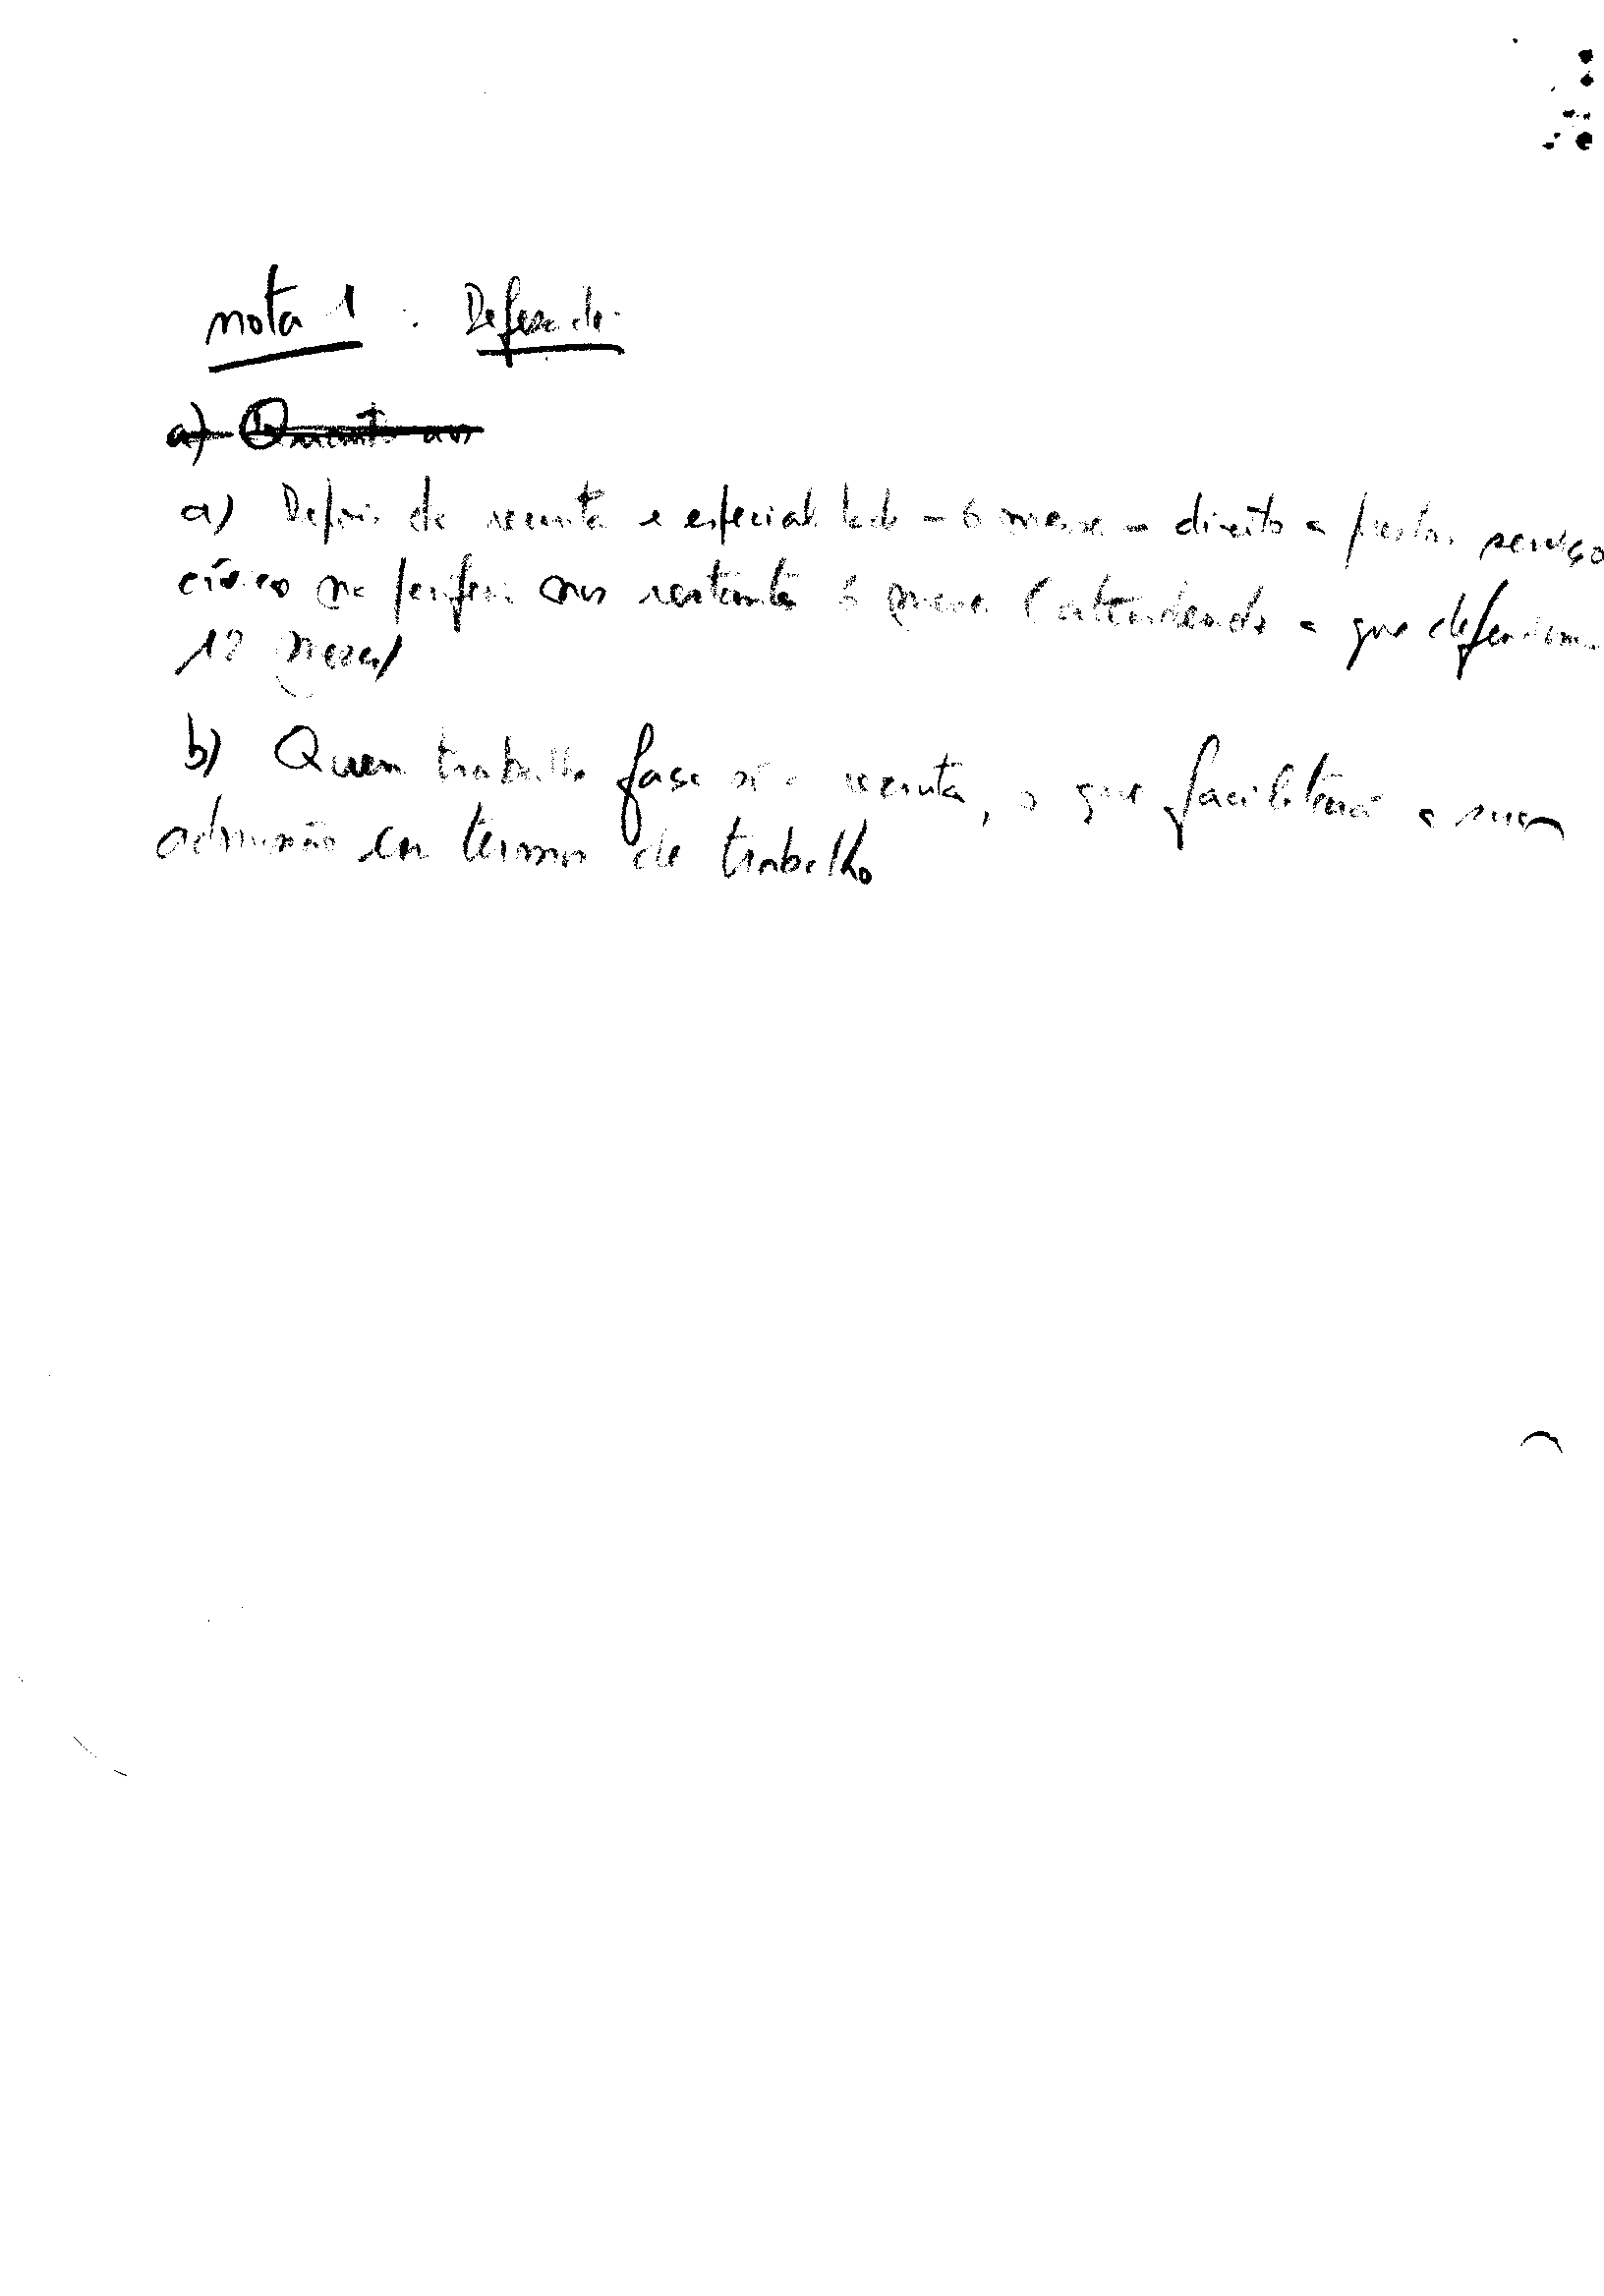 nota 1 : Defesa de
a) Quanto aos
a) Depois da recruta e especialidade - 6 meses - direito a prestar serviço
cívico na periferia nos restantes 6 meses (atendendo a que defendemos
12 meses)
b) Quem trabalha faça só a recruta, o que facilitará a sua
admissão em termos de trabalho